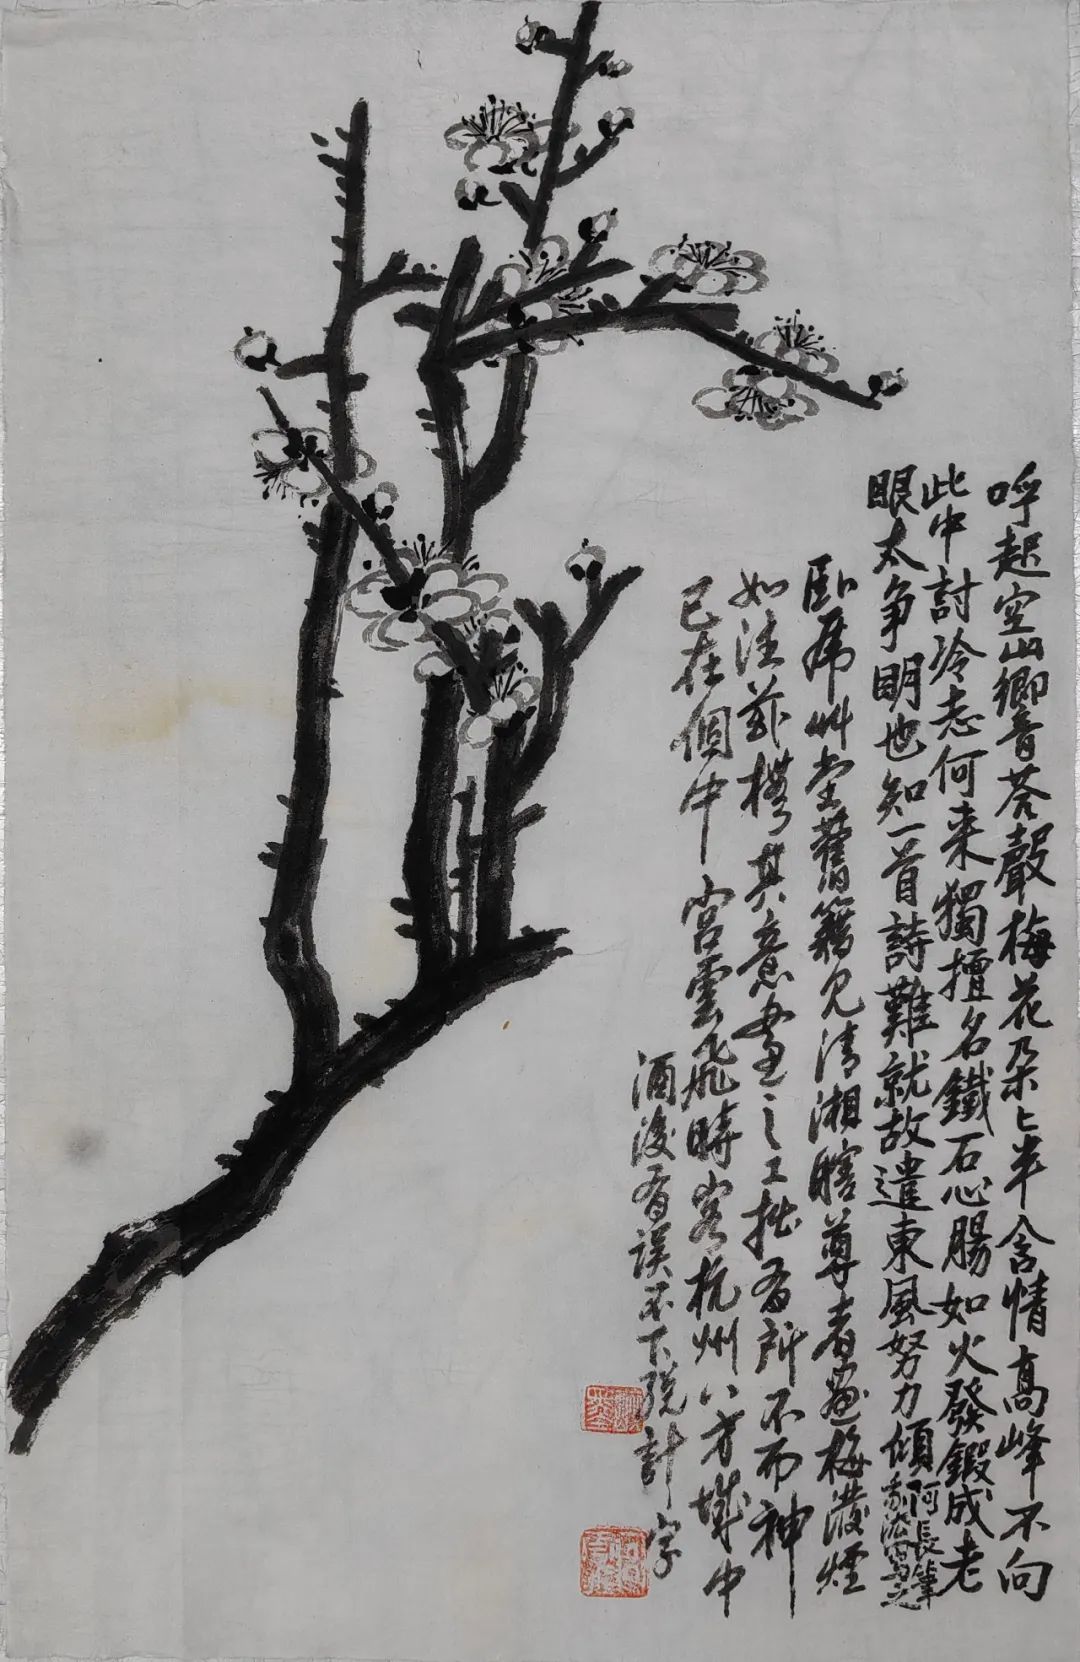 呼起空山響荅聲梅花朵〻半含情高峰不向
此中討冷志何來獨擅名鐵石心腸如火發鍛成老
眼太争明也知一首詩難就故遣東風努力傾
阿長筆
寫之
艸堂舊籍見清湘瞎尊者畫梅潑煙
如注茲橅其意畫之工拙有所不而神
已在個中 宫雲飛時客杭州八方城中
酒後有误不下計字